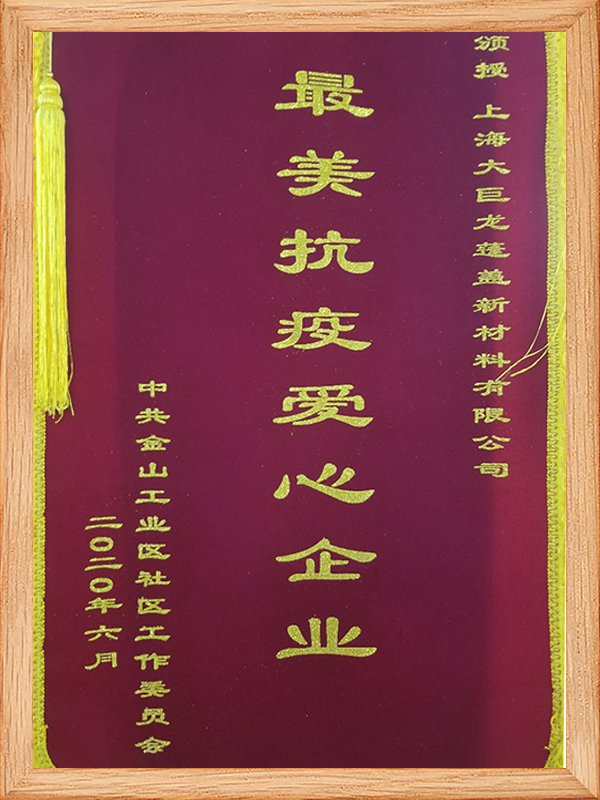 颁授 上海大巨龙蓬盖新材料有限公司
最美抗疫爱心企业
中共金山工业区社区工作委员会
二〇二〇年六月